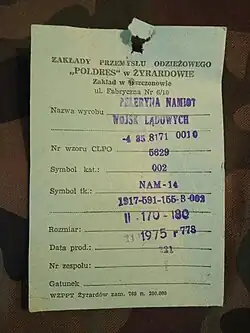 ZAKŁADY PRZEMYSŁU ODZIEŻOWEGO
„POLDRES” w ŻYRARDOWIE
Zakład w
ul. Fabryczna Nr 6/10
Nazwa wyrobu PELERYNA NAMIOT
WOJSK LĄDOWYCH
8171 0010
Nr wzoru CLPO 5629
Symbol kat.: 002
Symbol tk.: NAM-14
1917-591-155-B-002
Rozmiar: II 170-180
1975 r 778
Data prod.: 221
Nr zespołu:
Gatunek
WZPPT Żyrardów zam. 760 n. 200.000